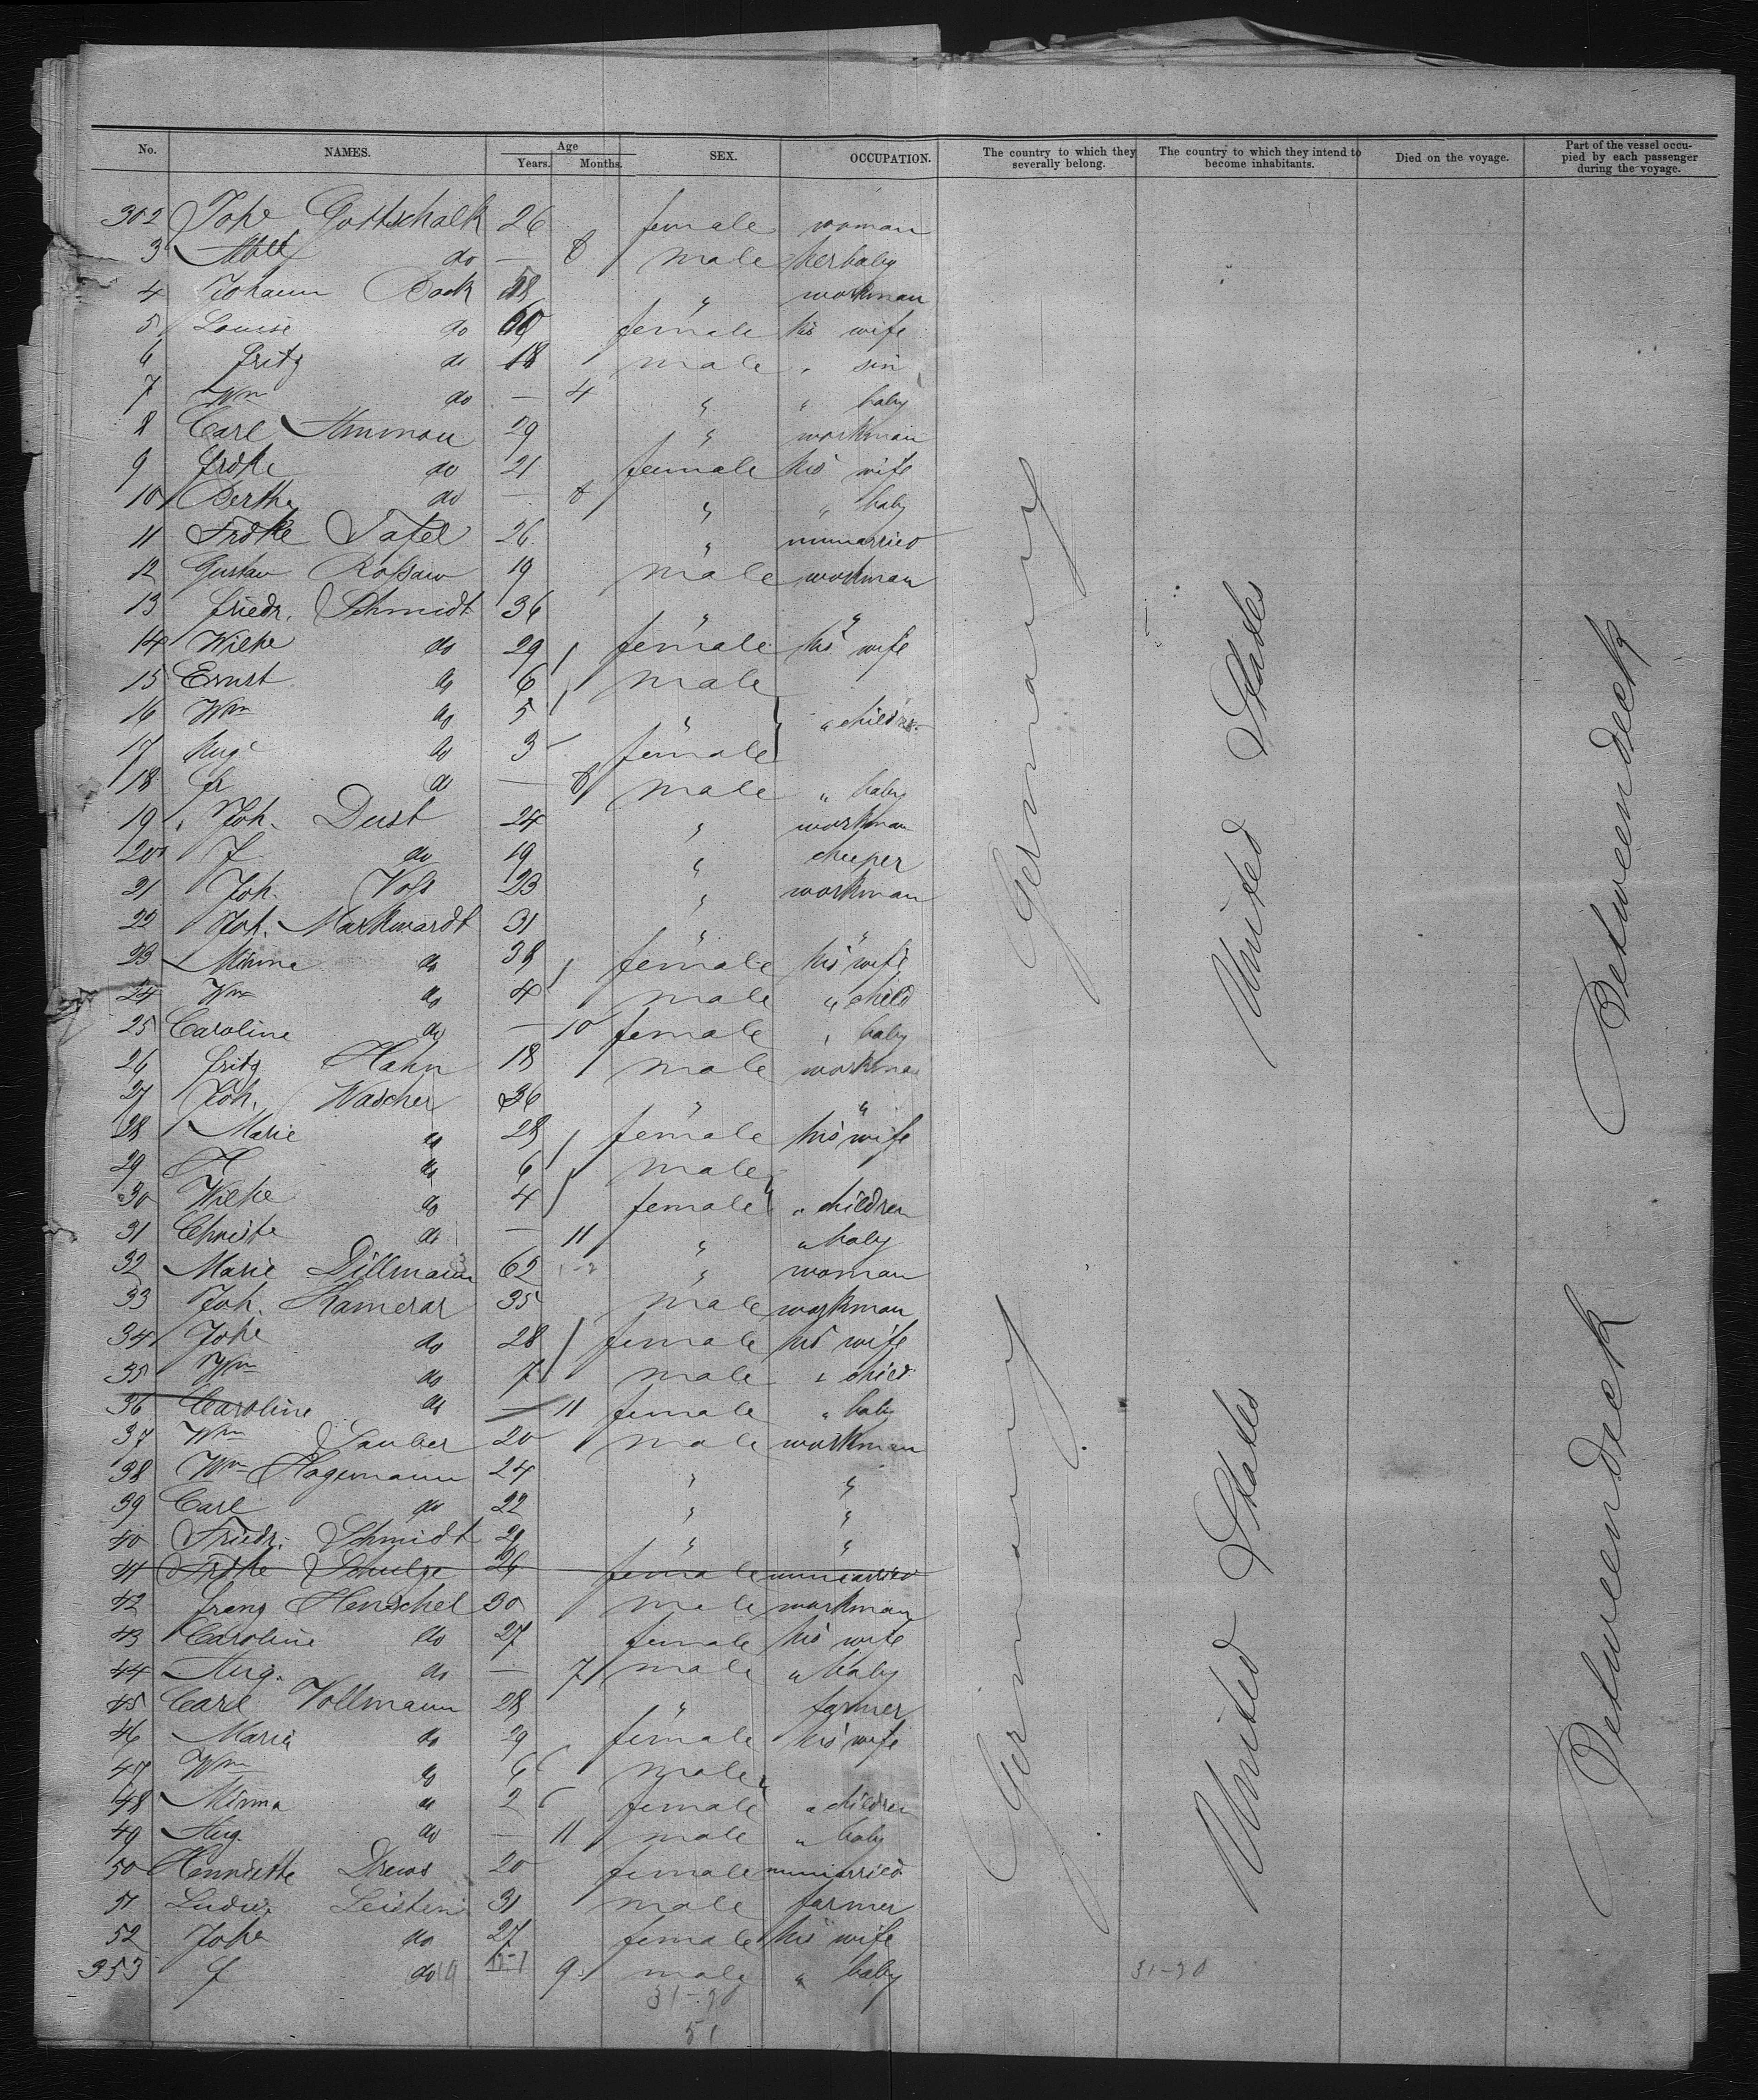 No. NAMES. Age Years. Months. SEX. OCCUPATION. The country to which they severally belong. The country to which they intend to become inhabitants. Died on the voyage. Part of the vessel occupied by each passenger during the voyage.
302 Johe Gottschalk 26 female woman
3 do — 8 male her baby
4 Johann Bock " workman
5 Louise do female his wife
6 Fritz do 18 male " son
7 Wm do — 4 " " baby
8 Carl Ammon 29 " workman
9 Frdke do 21 female his wife
10 Bertha do — 8 " " baby
11 Frdke Tafel 26 " unmarried
12 Gustav Roßaw 19 male workman
13 Friedr. Schmidt 36 " "
14 Wilhe do 29 female his wife
15 Ernst do 6 male
16 Wm do 5 " " children
17 Auge do 3 female
18 Fr do — 8 male " baby
19 Joh. Dust 24 " workman
20 J do 19 "
21 Joh. Voß 23 " workman
22 Joh. Markwardt 31 " "
23 Minna do 38 female his wife
24 Wm do 4 male " child
25 Caroline do — 10 female " baby
26 Fritz Hahn 18 male workman
27 Joh. Wascher 36 " "
28 Marie do 28 female his wife
29 do 6 male
30 Wilhe do 4 female " children
31 Christe do — 11 " " baby
32 Marie Dillmann 62 " woman
33 Joh. Kamerar 35 male workman
34 Johe do 28 female his wife
35 Wm do 7 male " child
36 Caroline do — 11 female " baby
37 Wm Sauber 20 male workman
38 Wm Hagemann 24 " "
39 Carl do 22 " "
40 Friedr. Schmidt 29 " "
41 Frdke Schulze 26 female unmarried
42 Franz Henschel 30 male workman
43 Caroline do 27 female his wife
44 Aug. do — 7 male " baby
45 Carl Vollmann 28 " farmer
46 Maria do 29 female his wife
47 Wm do 6 male
48 Minna do 2 female " children
49 Aug. do — 11 male " baby
50 Henriette Drews 20 female unmarried
51 Ludwig Leisten 31 male farmer
52 Johe do 27 female his wife
353 J do 9 male " baby
31-20
31-20
51
Germany
United States
Betweendeck
Germany
United States
Betweendeck